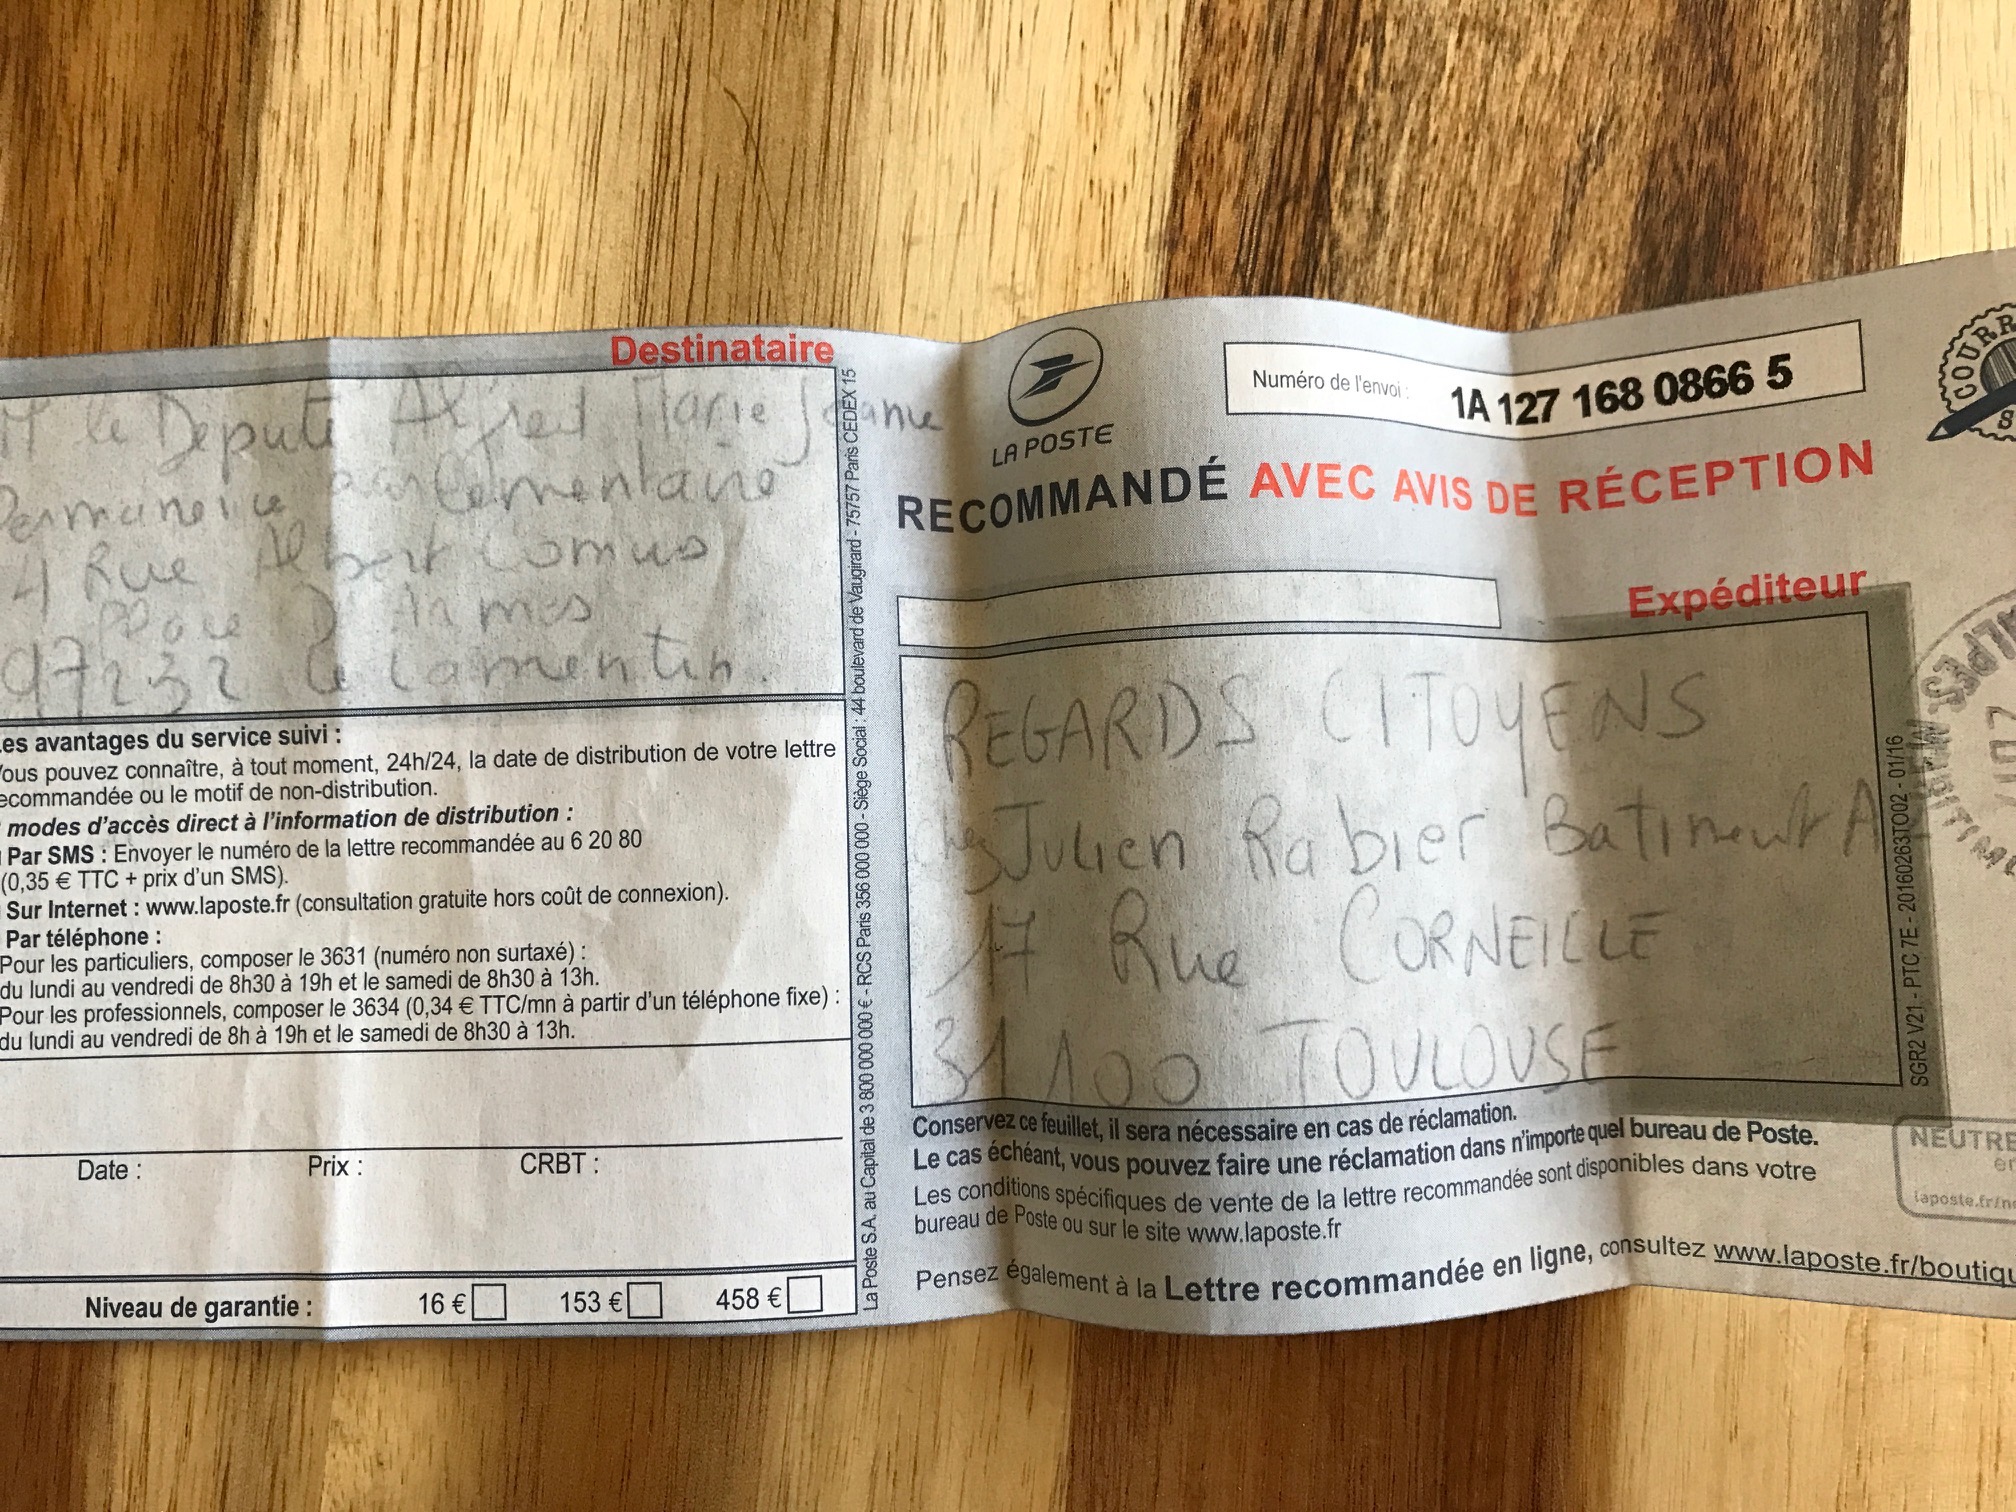 Destinataire
M le Deputé Alfred Marie Jeanne
Permanence parlementaire
4 Rue Albert Comus
Place D'Armes
97232 le Lamentin.
Les avantages du service suivi :
Vous pouvez connaître, à tout moment, 24h/24, la date de distribution de votre lettre
recommandée ou le motif de non-distribution.
modes d'accès direct à l'information de distribution :
Par SMS : Envoyer le numéro de la lettre recommandée au 6 20 80
(0,35 € TTC + prix d'un SMS).
Sur Internet : www.laposte.fr (consultation gratuite hors coût de connexion).
Par téléphone :
Pour les particuliers, composer le 3631 (numéro non surtaxé) :
du lundi au vendredi de 8h30 à 19h et le samedi de 8h30 à 13h.
Pour les professionnels, composer le 3634 (0,34 € TTC/mn à partir d'un téléphone fixe) :
du lundi au vendredi de 8h à 19h et le samedi de 8h30 à 13h.
Date : Prix : CRBT :
Niveau de garantie : 16 € 153 € 458 €
La Poste S.A. au Capital de 3 800 000 000 € - RCS Paris 356 000 000 - Siège Social : 44 boulevard de Vaugirard - 75757 Paris CEDEX 15
LA POSTE
Numéro de l'envoi : 1A 127 168 0866 5
RECOMMANDÉ AVEC AVIS DE RÉCEPTION
Expéditeur
REGARDS CITOYENS
chez Julien Rabier Batiment A
17 Rue CORNEILLE
31100 TOULOUSE
SGR2 V21 - PTC 7E - 20160263TO02 - 01/16
Conservez ce feuillet, il sera nécessaire en cas de réclamation.
Le cas échéant, vous pouvez faire une réclamation dans n'importe quel bureau de Poste.
Les conditions spécifiques de vente de la lettre recommandée sont disponibles dans votre
bureau de Poste ou sur le site www.laposte.fr
Pensez également à la Lettre recommandée en ligne, consultez www.laposte.fr/boutiqu
COURR
ALPES MARITIME
NEUTRE
laposte.fr/ne